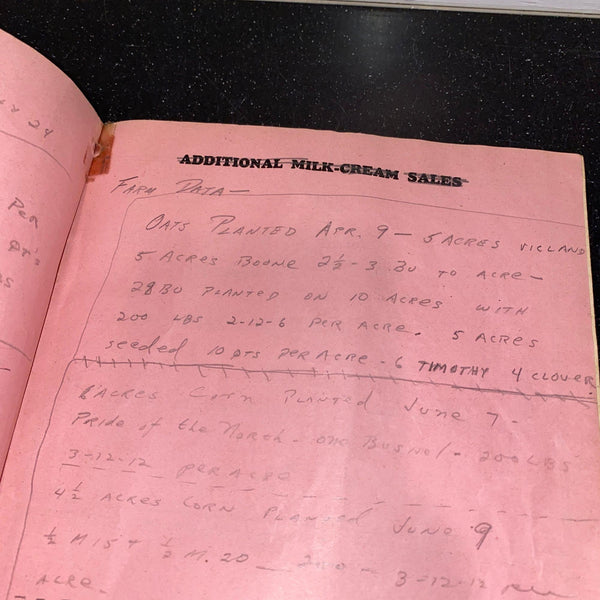 24
Per
QTS
ADDITIONAL MILK-CREAM SALES
FARM DATA —
OATS PLANTED APR. 9 — 5 ACRES VICLAND
5 ACRES BOONE 2½ - 3 BU TO ACRE —
28 BU PLANTED ON 10 ACRES WITH
200 LBS 2-12-6 PER ACRE. 5 ACRES
seeded 10 QTS PER ACRE - 6 TIMOTHY 4 CLOVER.
ACRES CORN PLANTED JUNE 7 -
Pride of the North - one Bushel - 200 LBS
3-12-12 PER ACRE
4½ ACRES CORN PLANTED JUNE 9.
½ M15 + ½ M.20 — 200 — 3-12-12 per
ACRE -